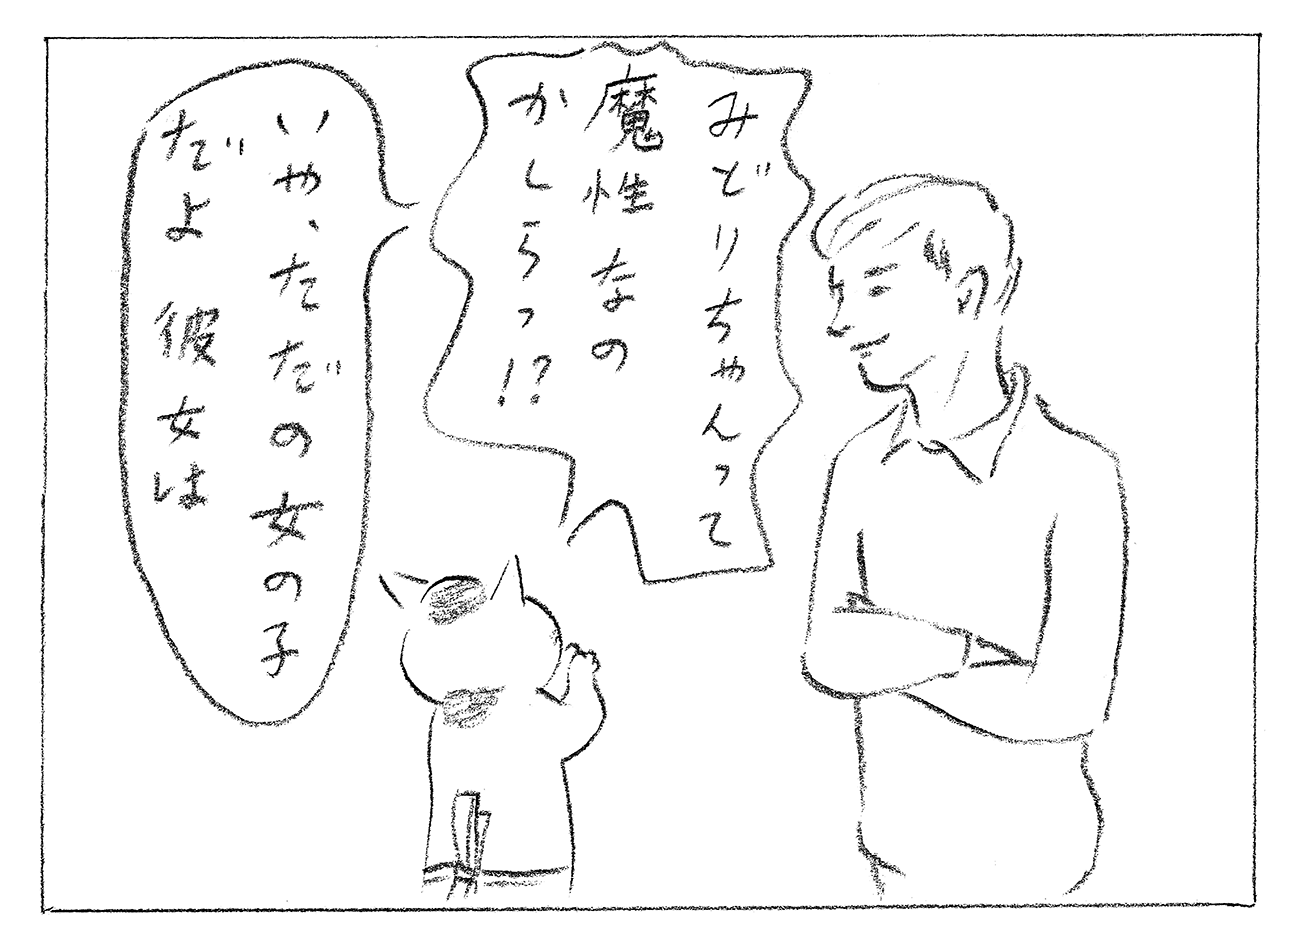 みどりちゃんって
魔性なの
かしらっ!?
いや、ただの女の子
だよ彼女は